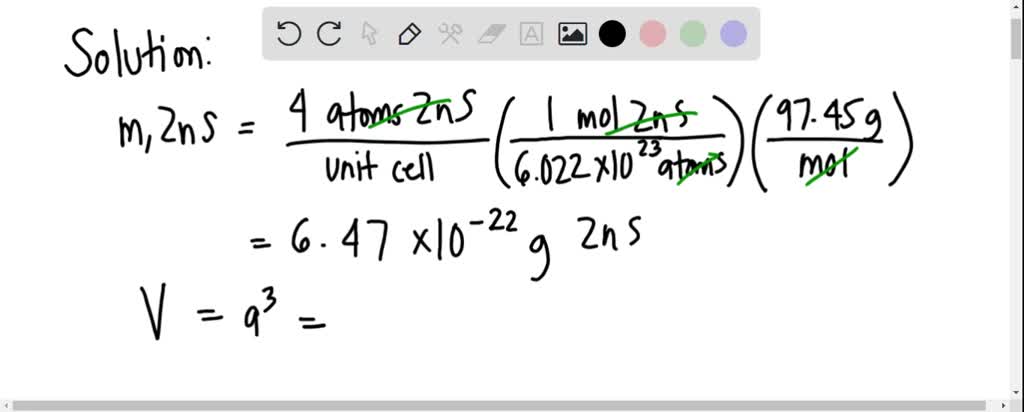 Solution:
m, ZnS = 4 atoms ZnS / unit cell (1 mol ZnS / 6.022 x 10^23 atoms) (97.45 g / mol)
= 6.47 x 10^-22 g ZnS
V = a^3 =